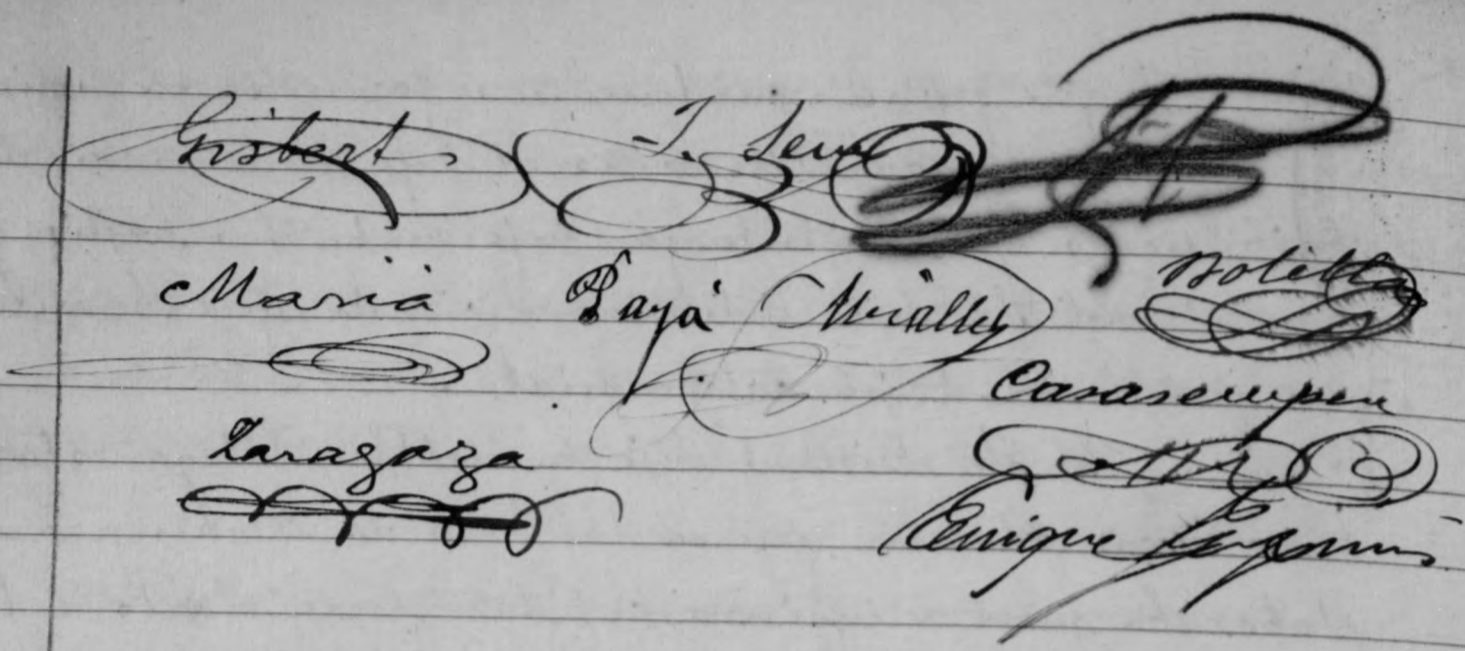 Gisbert
Mariá Payá Miralles Botella
Casasempere
Zaragoza
Enrique